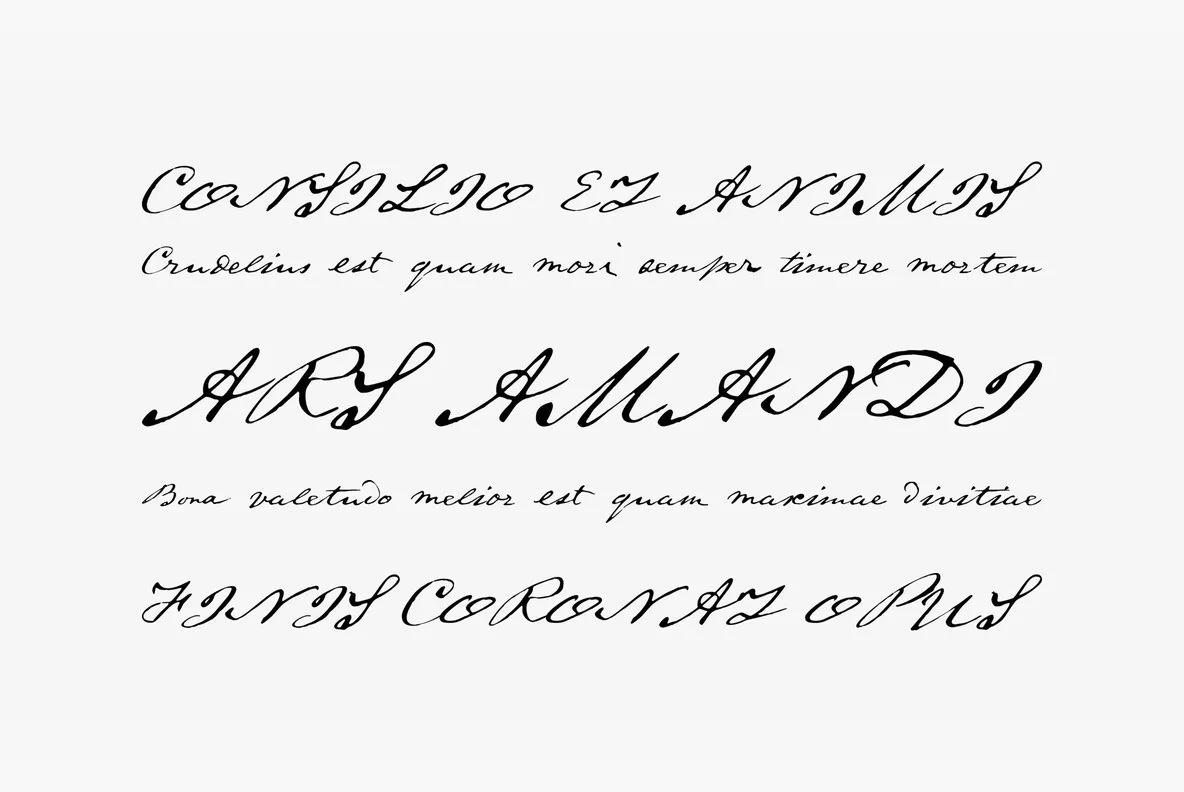 CONSILIO ET ANIMIS
Crudelius est quam mori semper timere mortem
ARS AMANDI
Bona valetudo melior est quam maximae divitiae
FINIS CORONAT OPUS